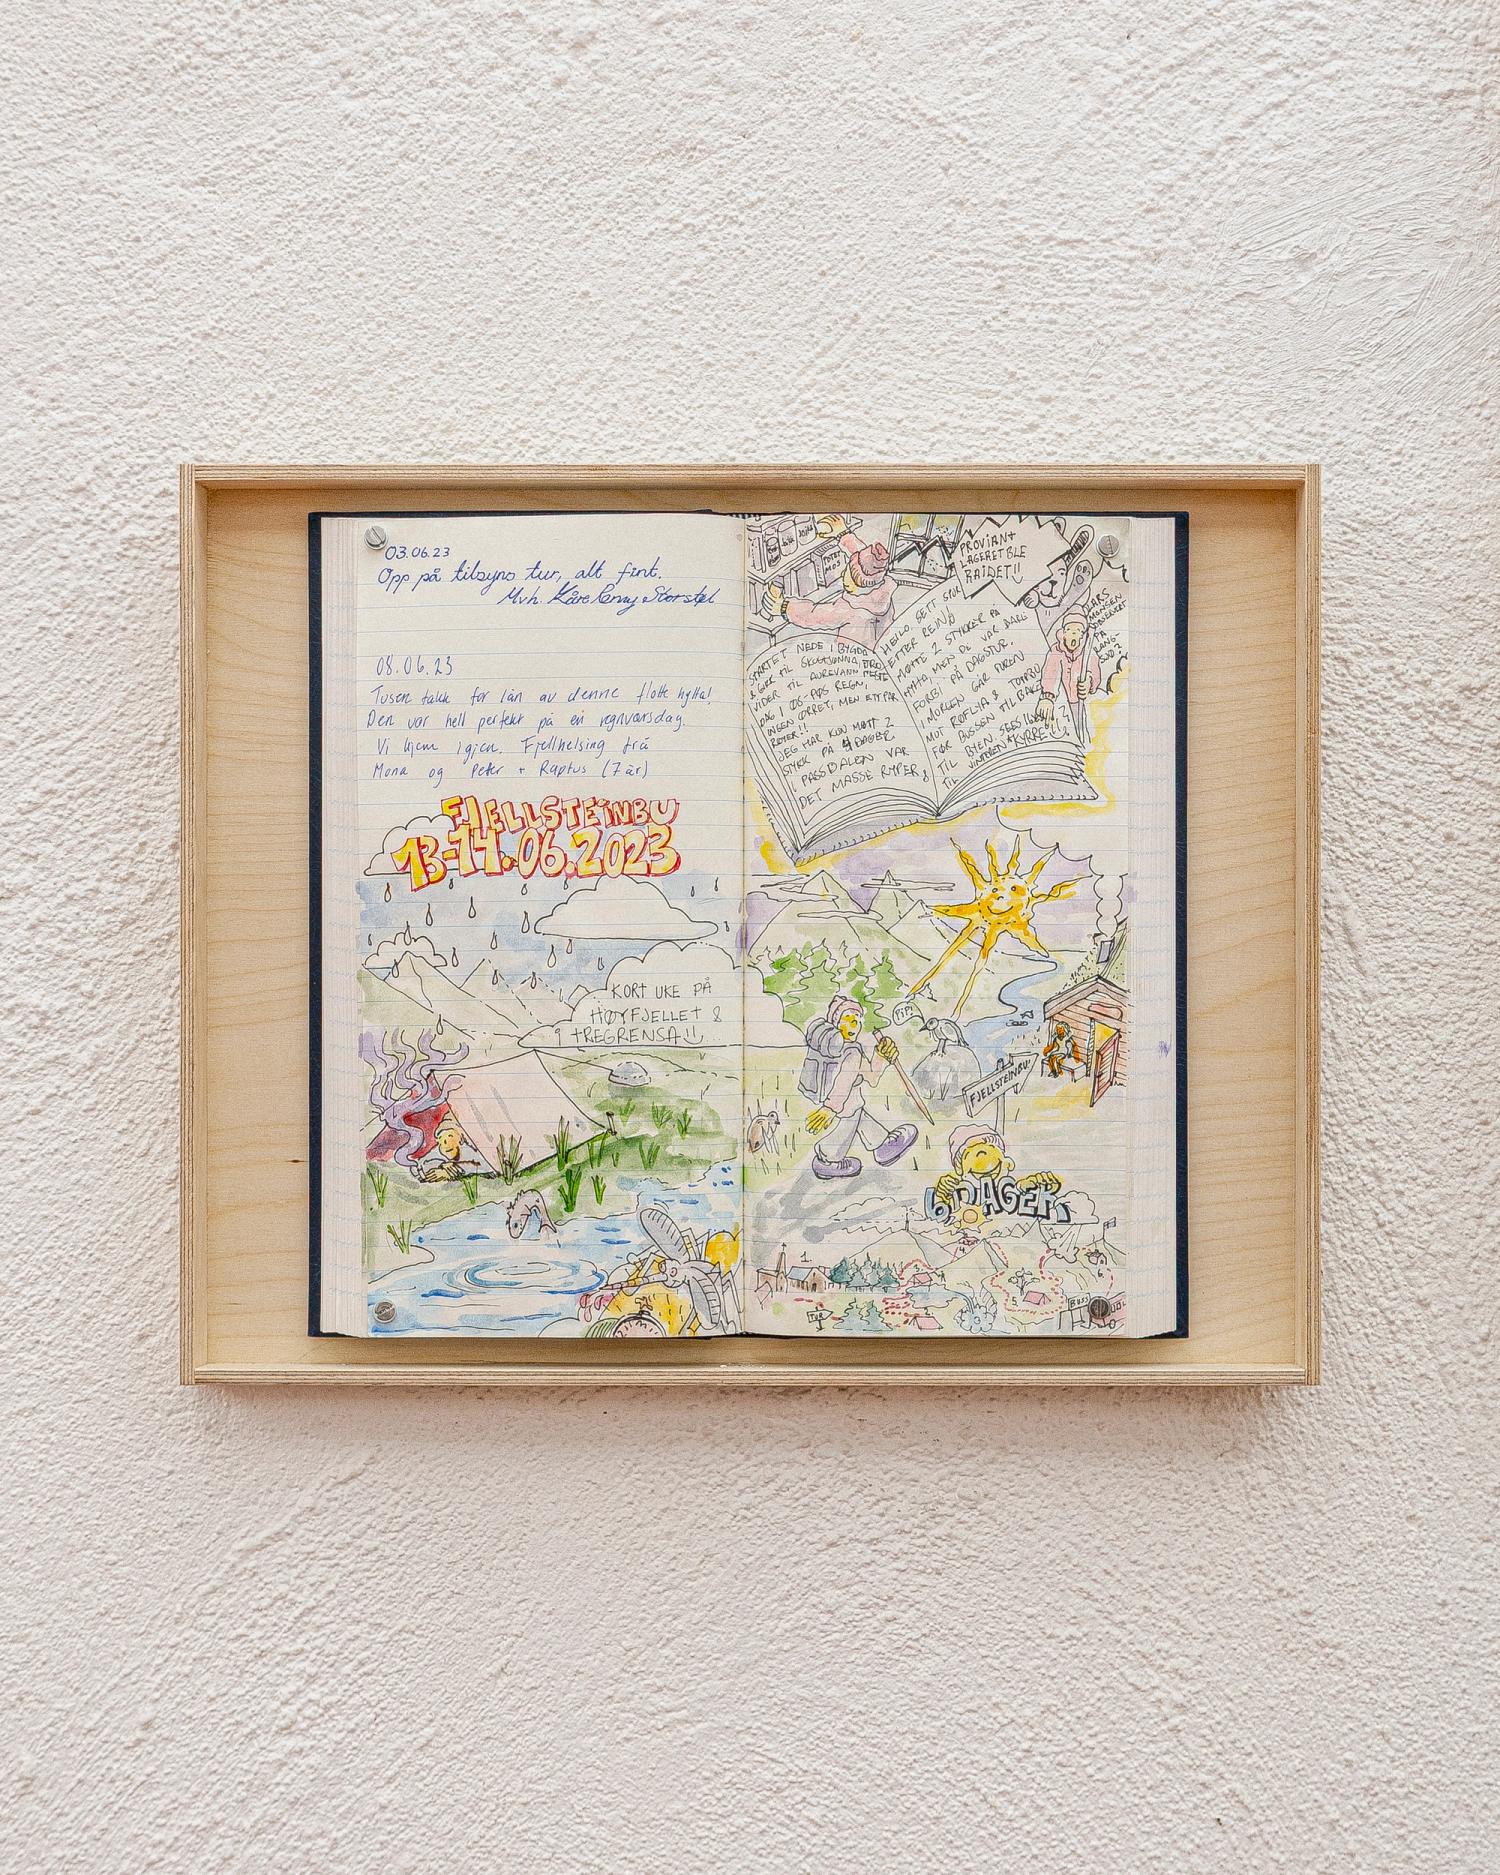 03.06.23
Opp på tilsyns tur, alt fint.
Mvh. Kåre
08.06.23
Tusen takk for lån av denne flotte hytta!
Den var helt perfekt på en regnværsdag.
Vi kjem igjen. Fjellhelsing frå
Mona og Peter + Raptus (7 år)
FJELLSTEINBU
13-14.06.2023
KORT UKE PÅ
HØYFJELLET &
TREGRENSA!!
PROVIANT
LAGERET BLE
RAIDET!!
STARTET NEDE I BYGDA
& GIKK TIL SKOGTJØNNA, DRO
VIDER TIL AUREVANN NESTE
DAG I ØS-PØS REGN,
INGEN ØRRET, MEN ETT PAR
RØYER!!
JEG HAR KUN MØTT 2
STYKK PÅ 4 DAGER
I PASSDALEN VAR
DET MASSE RYPER &
HEILO. SETT SPOR
ETTER REIN
MØTTE 2 STYKKER PÅ
HYTTA, MEN DE VAR BARE
FORBI PÅ DAGSTUR.
I MORGEN GÅR TUREN
MOT
FØR BUSSEN TILBAKE
TIL BYEN. SEES
TIL VINTEREN
LARS
MONSEN
PÅ
LANG-
PIPI
FJELLSTEINBU
6 DAGER
1
TUR
BUSS